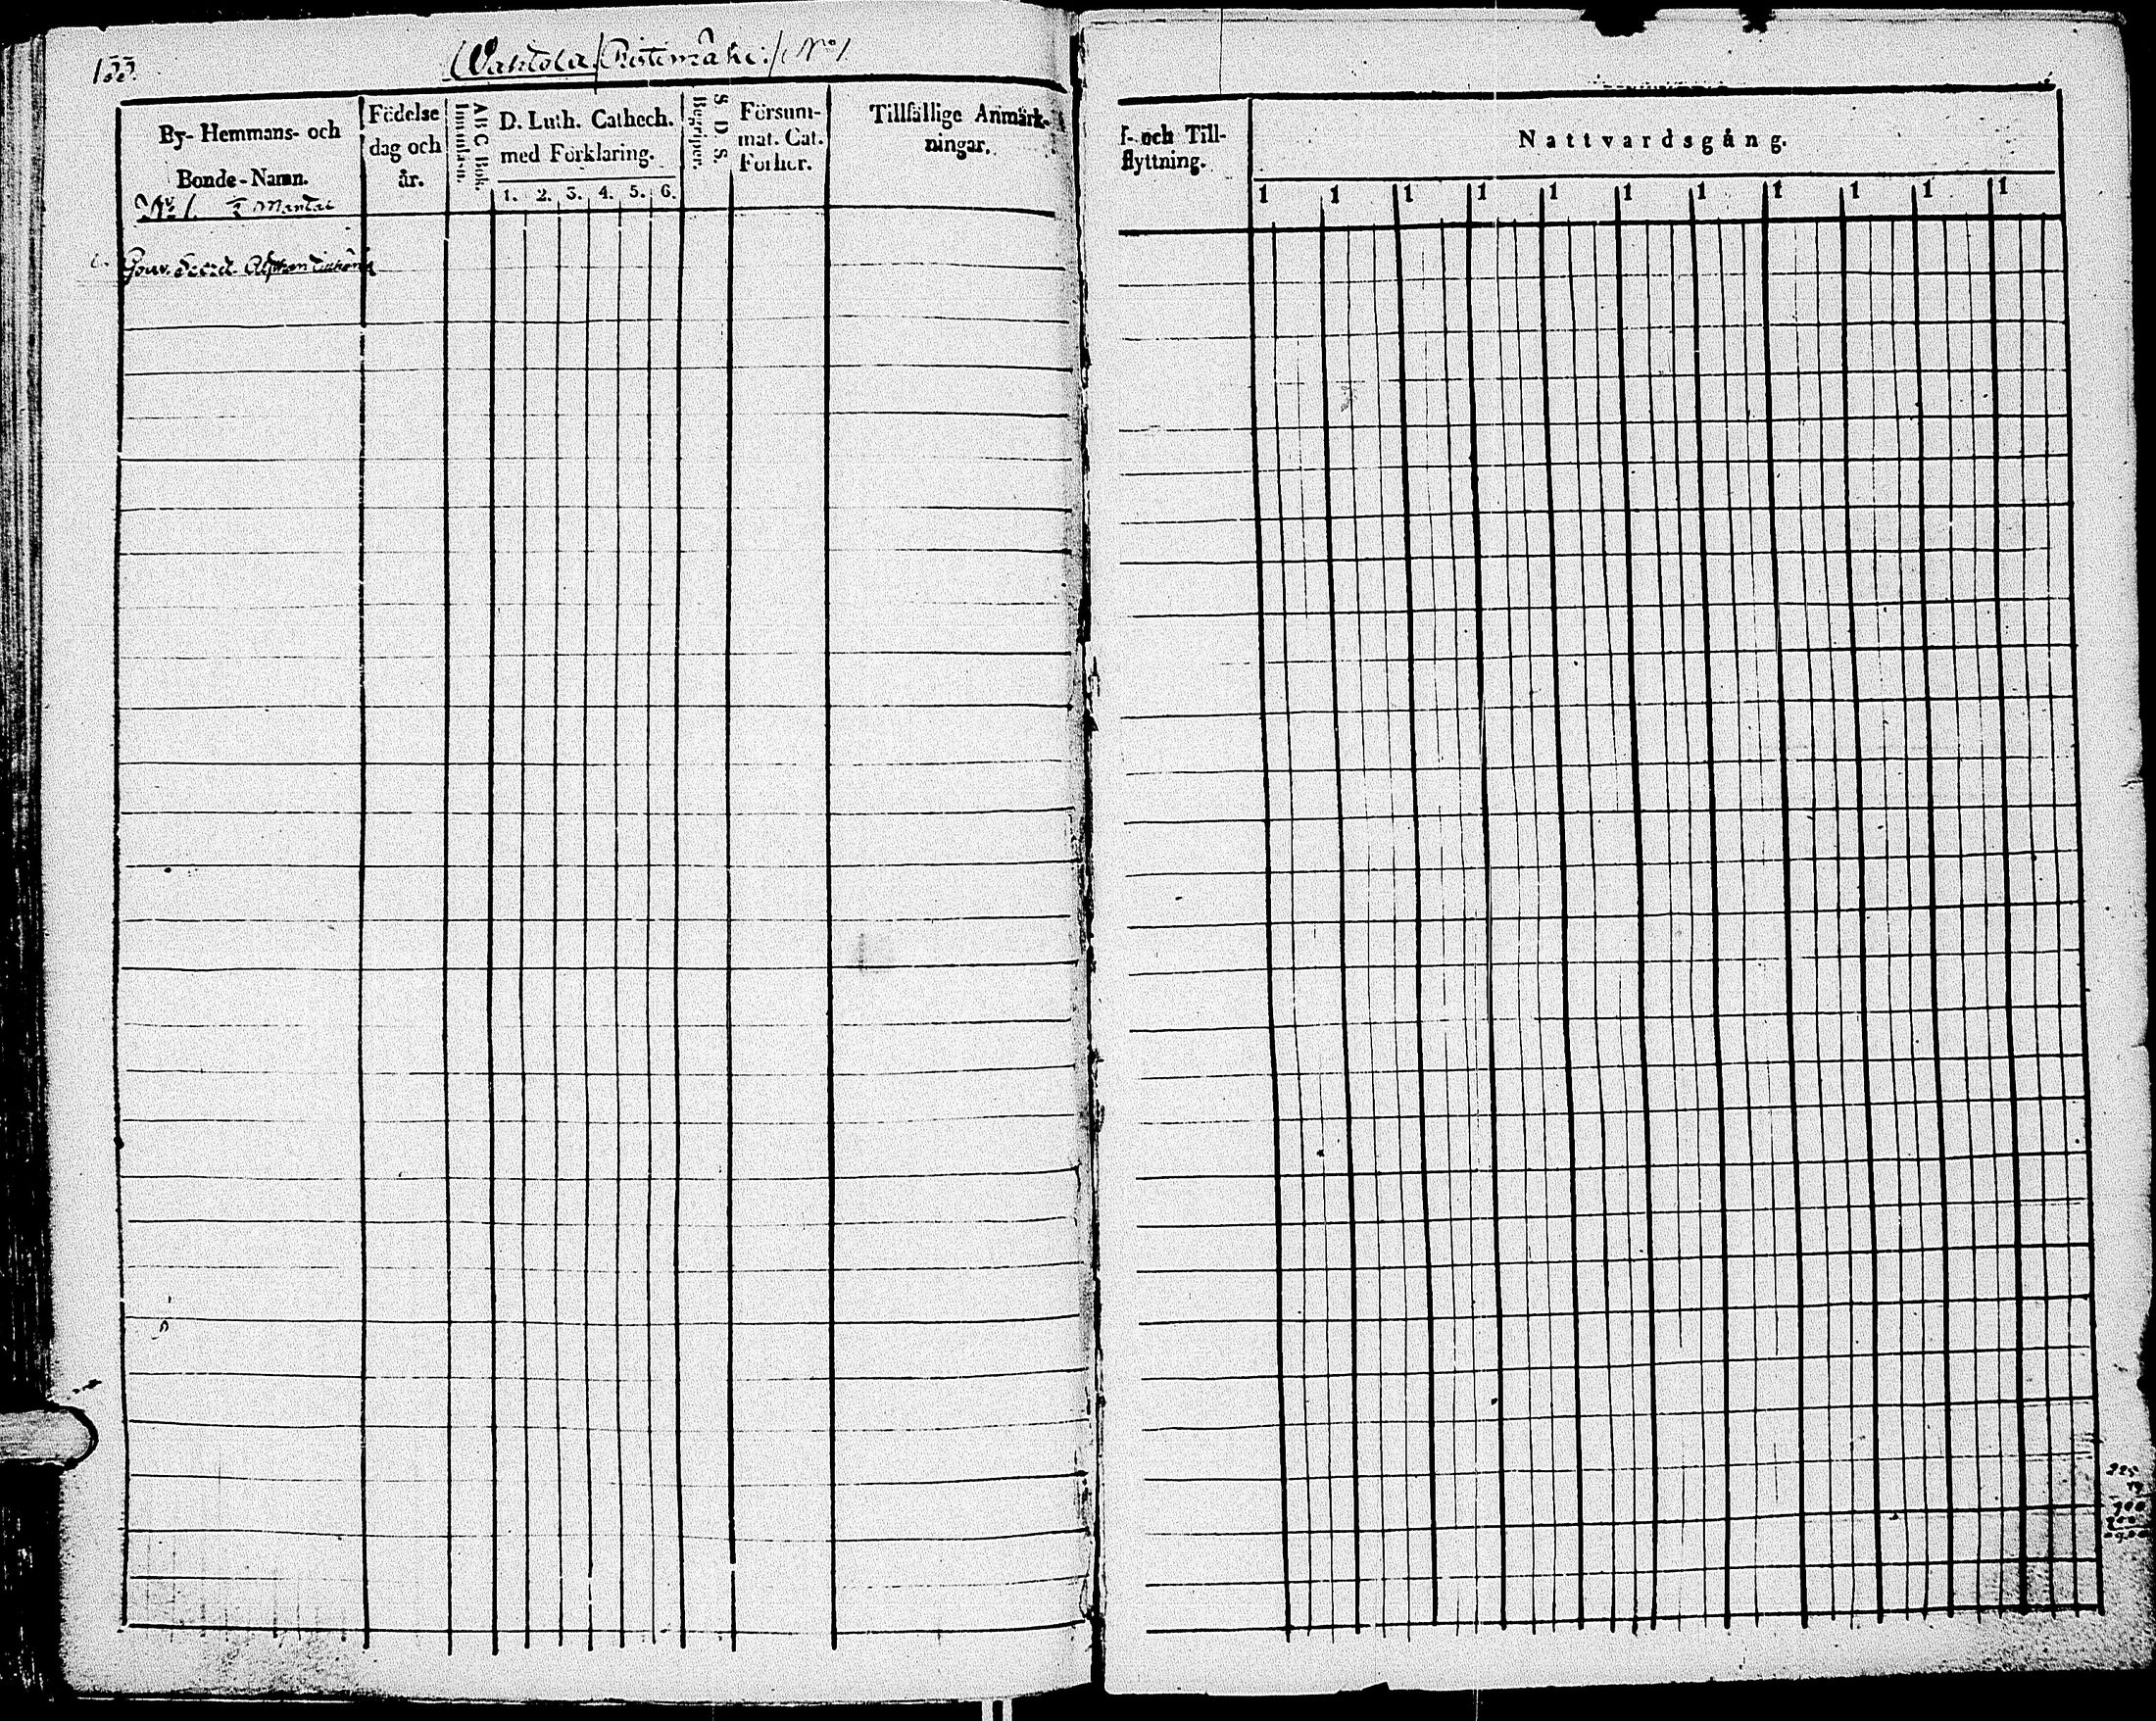 133.
Wahtola /: Ristimäki :/ No 1
By- Hemmans- och
Bonde-Namn.
Födelse
dag och
år.
A B C Bok.
Innanläsn.
D. Luth. Cathech.
med Förklaring.
1. 2. 3. 4. 5. 6.
S. D. S.
Begriper.
Försum-
mat. Cat.
Förhör.
Tillfällige Anmärk-
ningar.
No 1. Mantal
Gouv. Secret.
f- och Till-
flyttning.
Nattvardsgång.
1 1 1 1 1 1 1 1 1 1 1